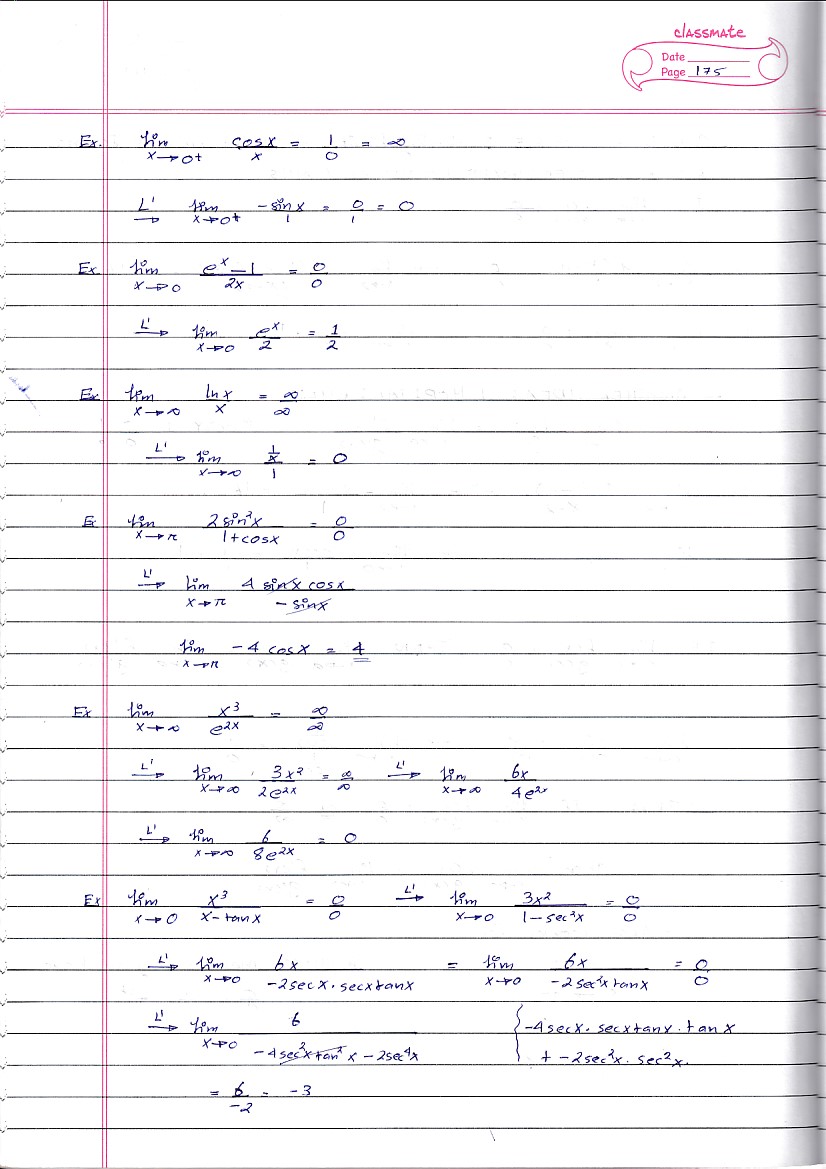 classmate
Date
Page 175
Ex. lim x→0+ cosx/x = 1/0 = ∞
L' → lim x→0+ -sinx/1 = 0/1 = 0
Ex lim x→0 (e^x - 1)/2x = 0/0
L' → lim x→0 e^x/2 = 1/2
Ex lim x→∞ lnx/x = ∞/∞
L' → lim x→∞ (1/x)/1 = 0
Ex lim x→π 2sin²x/(1+cosx) = 0/0
L' → lim x→π 4 sinx cosx/-sinx
lim x→π -4 cosx = 4
Ex lim x→∞ x³/e^2x = ∞/∞
L' → lim x→∞ 3x²/2e^2x = ∞/∞ L' → lim x→∞ 6x/4e^2x
L' → lim x→∞ 6/8e^2x = 0
Ex lim x→0 x³/(x-tanx) = 0/0 L' → lim x→0 3x²/(1-sec²x) = 0/0
L' → lim x→0 6x/(-2secx.secxtanx) = lim x→0 6x/(-2sec²xtanx) = 0/0
L' → lim x→0 6/(-4sec²xtan²x - 2sec⁴x) { -4secx.secxtanx.tanx
+ -2sec²x.sec²x.
= 6/-2 = -3